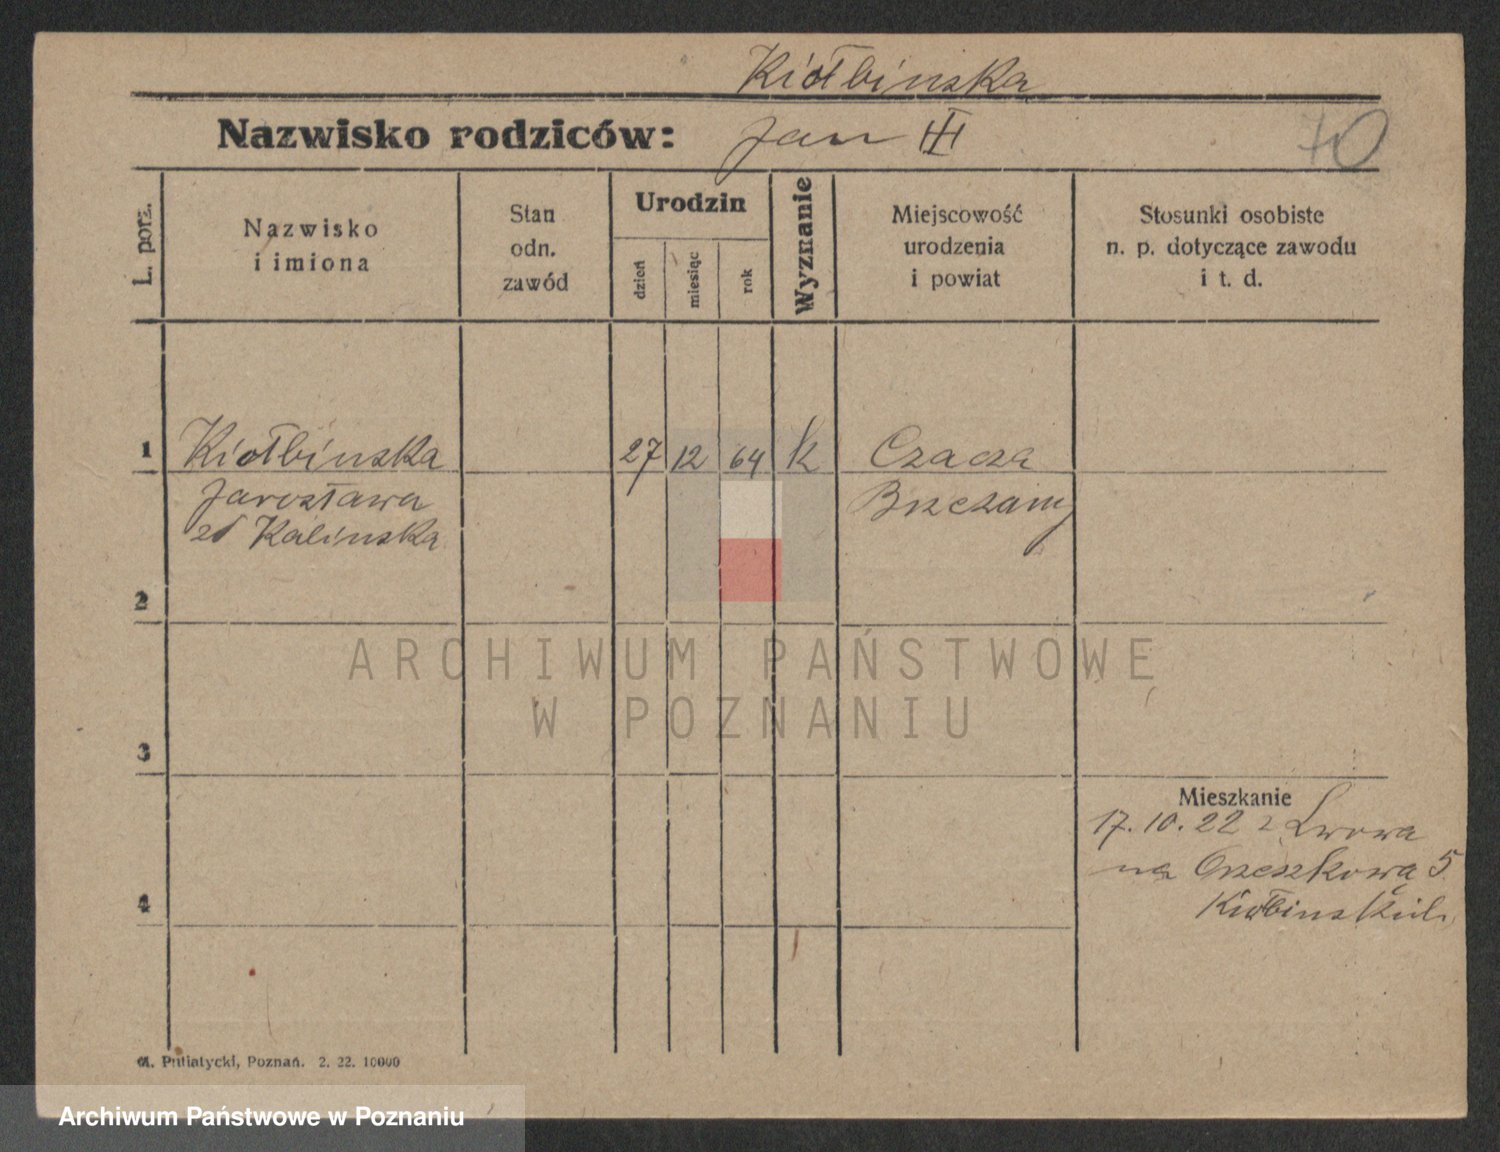 Kiołbińska
Nazwisko rodziców: Jan III
70
L. porz.
Nazwisko
i imiona
Stan
odn.
zawód
Urodzin
dzień
miesiąc
rok
Wyznanie
Miejscowość
urodzenia
i powiat
Stosunki osobiste
n. p. dotyczące zawodu
i t. d.
1 Kiołbińska 27 12 64 k Czacza
Jarosława Brzezany
zd Kalinska
2
3
4
Mieszkanie
17.10.22 z Lwowa
na Orzeszkową 5
M. Putiatycki, Poznań. 2. 22. 10000
ARCHIWUM PAŃSTWOWE
W POZNANIU
Archiwum Państwowe w Poznaniu